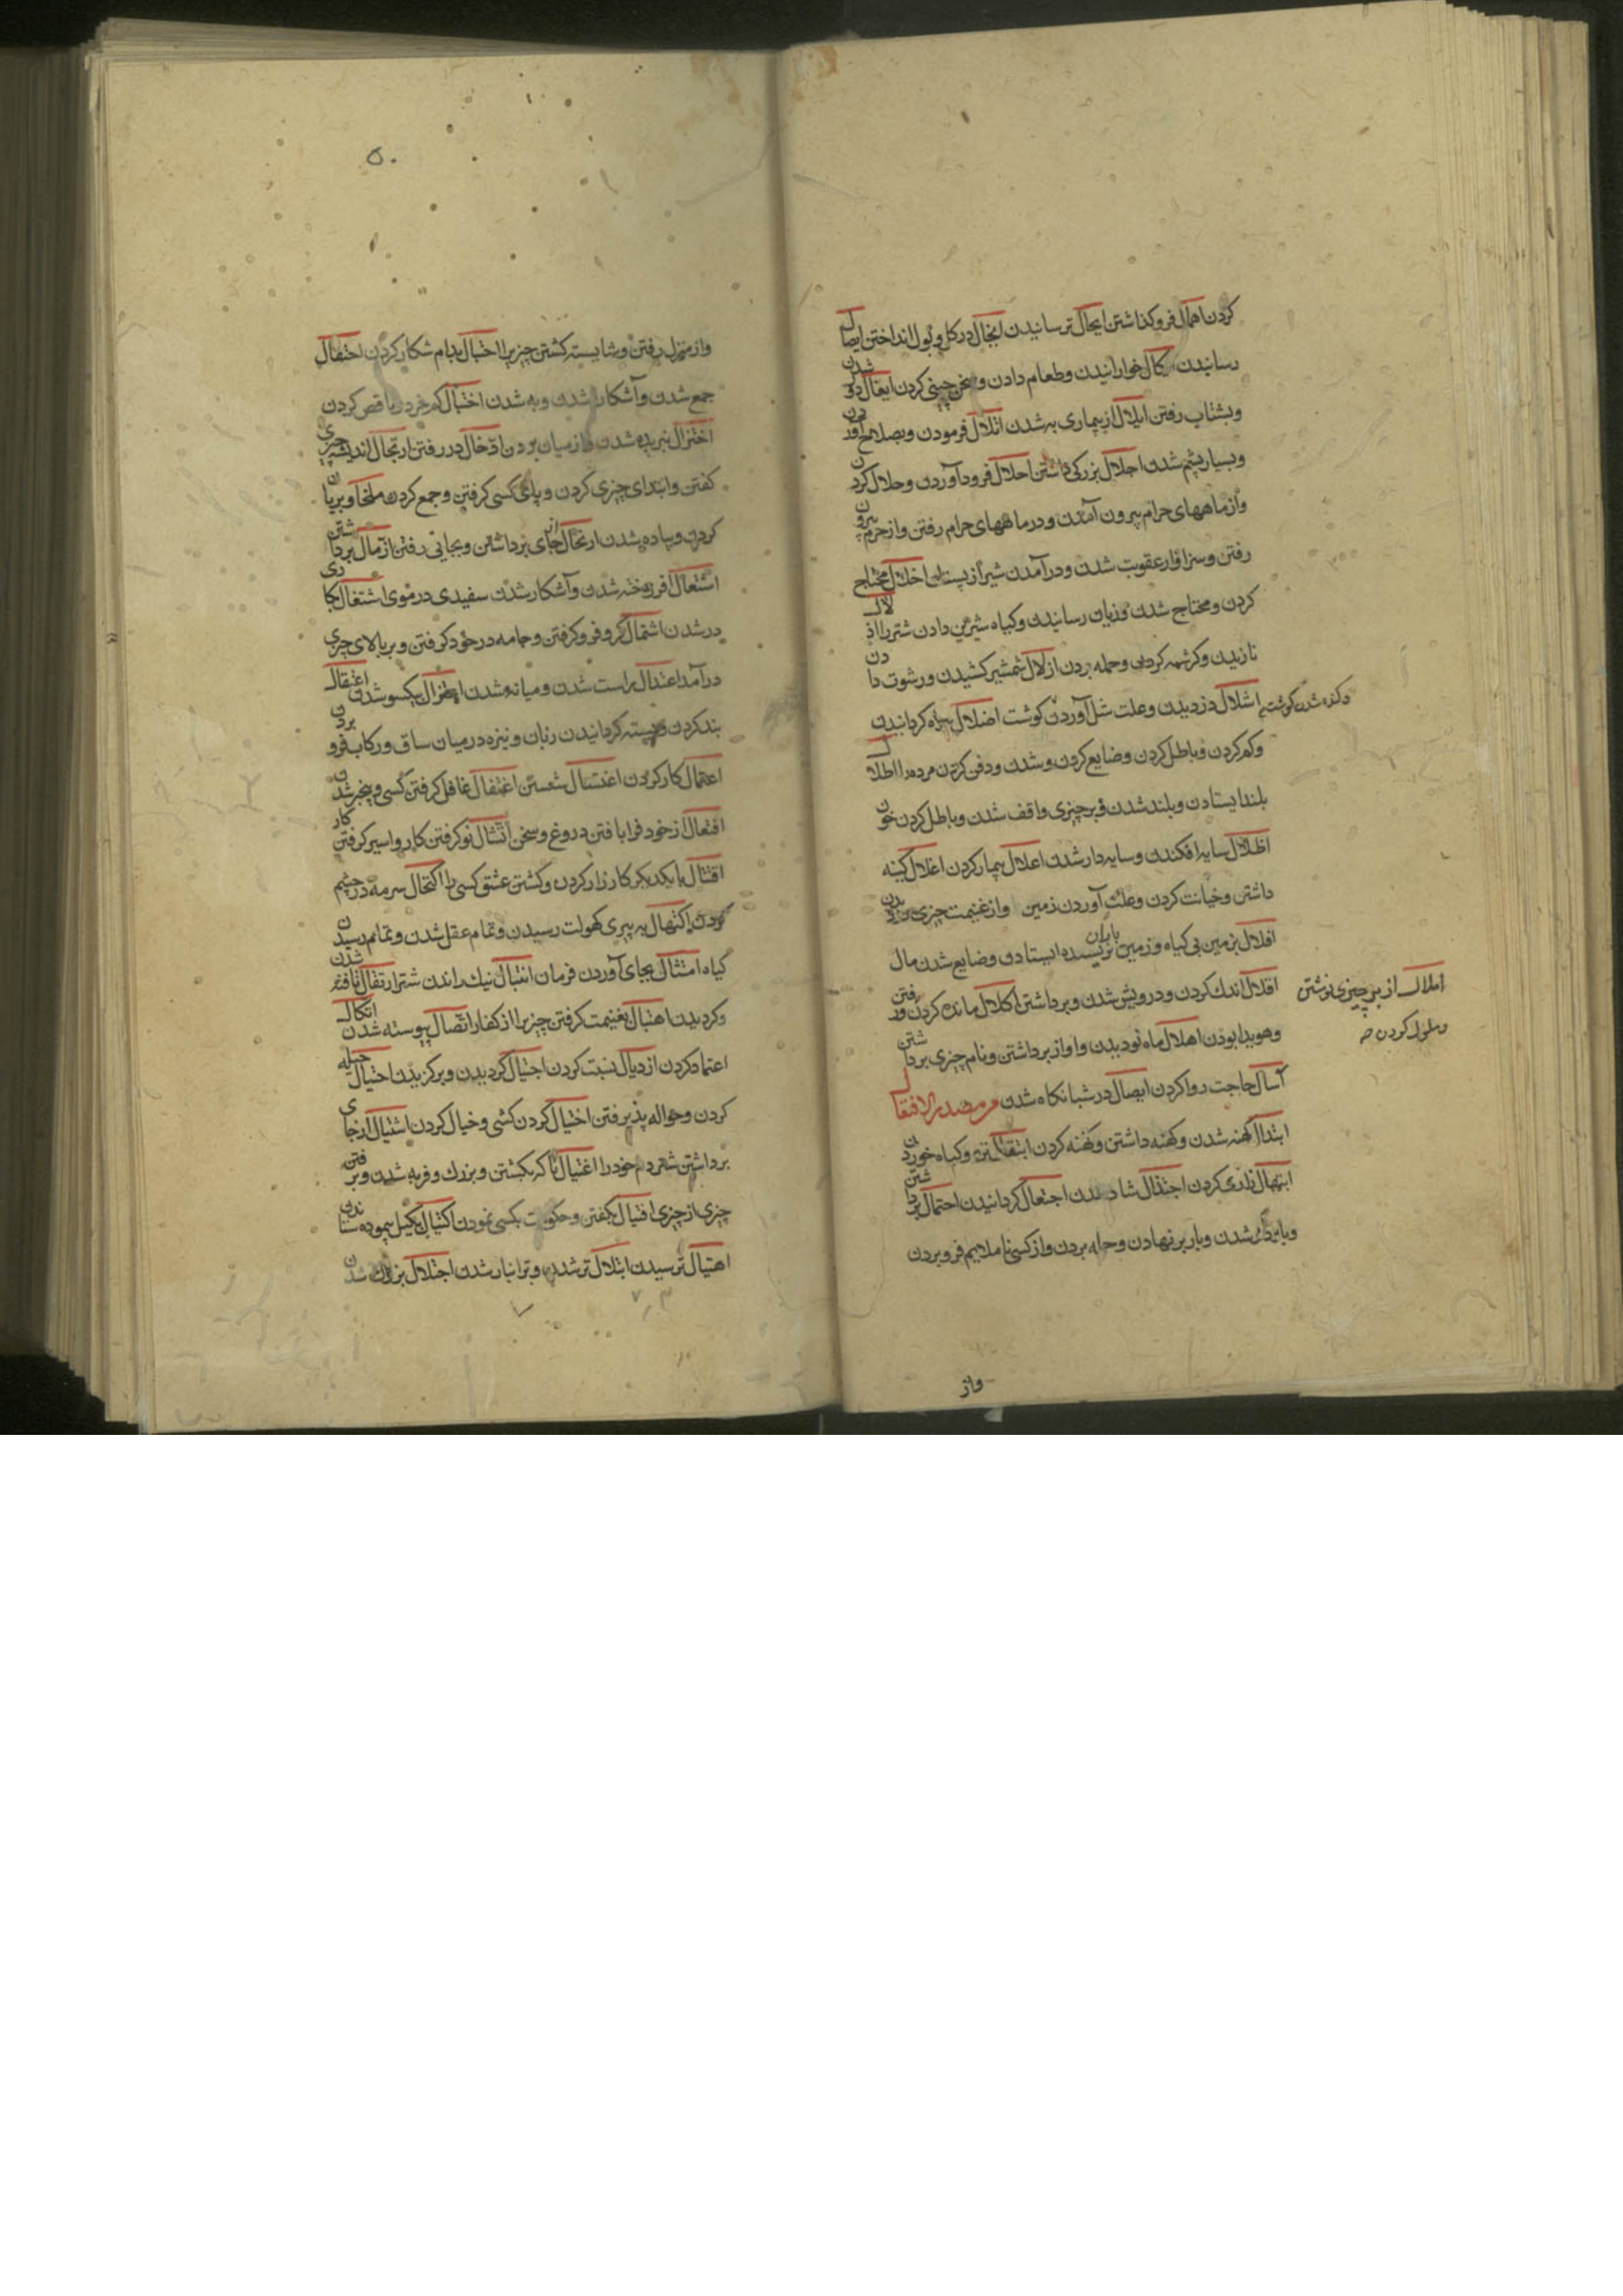 کردن اهمال فروکذاشتن ایجال ترسانیدن ایحال در کل و بول انداختن ایصال
رسانیدن ایکال خورانیدن وطعام دادن وسخن چینی کردن ایغال دور شدن
وبشتاب رفتن ابلال از بیماری به شدن اتلال فرمودن وبصلاح آوردن
وبسیار پشم شدن اجلال بزرکی داشتن احلال فرود آوردن وحلال کردن
واز ماههای حرام بیرون آمدن ودر ماههای حرام رفتن واز حرم بیرون
رفتن وسزاوار عقوبت شدن ودرآمدن شیر از پستان اخلال محتاج
کردن ومحتاج شدن وزیان رسانیدن وکیاه شیرین دادن شتر را اذلال
نازیدن وکرشمه کردن وحمله بردن ازلال شمشیر کشیدن ورشوت دادن
اشلال دزدیدن وعلت شل آوردن کوشت اضلال بیراه کردانیدن
وکم کردن وباطل کردن وضایع کردن وشدن ودفن کردن مرده را اطلال
بلند ایستادن وبلند شدن وبر چیزی واقف شدن وباطل کردن خون
اظلال سایه افکندن وسایه دار شدن اعلال بیمار کردن اغلال کینه
داشتن وخیانت کردن وعلت آوردن زمین واز غنیمت چیزی دزدیدن
افلال بزمین بی کیاه وزمین باران نرسیده ایستادن وضایع شدن مال
اقلال اندک کردن ودرویش شدن وبرداشتن اکلال مانده کردن ورفتن
وهویدا بودن اهلال ماه نو دیدن واواز برداشتن ونام چیزی برداشتن
آسال حاجت روا کردن ایصال در شبانکاه شدن من مصدر الافتعال
ابتذال کهنه شدن وکهنه داشتن وکهنه کردن ابتقال تره وکیاه خوردن
ابتهال زاری کردن اجتذال شاد شدن اجتعال کردانیدن احتمال برداشتن
وباربردار شدن وبار بر نهادن وحمله بردن واز کسی ناملایم فرو بردن
املال از بر چیزی نوشتن
وملول کردن
واز
۵۰
واز منزل رفتن وشایسته کشتن چیزیرا احتبال بدام شکار کردن احتفال
جمع شدن وآشکارا شدن وبه شدن اختبال کم خرد وناقص کردن
اختزال بریده شدن واز میان بردن ادخال در رفتن ارتجال اندیشه چیزی
کفتن وابتدای چیزی کردن وپای کسی کرفتن وجمع کردن ملخ وبریان
کردن وپیاده شدن ارتحال از جای برداشتن وبجائی رفتن ازمال برداشتن
اشتعال افروخته شدن وآشکار شدن سفیدی در موی اشتغال کاری
در شدن اشتمال کرد فروکرفتن وجامه در خود کرفتن وبر بالای چیزی
درآمدن اعتدال راست شدن ومیانه شدن اعتزال بیکسو شدن اعتقال
بند کردن وبسته کردانیدن زبان ونیزه در میان ساق ورکاب فرو بردن
اعتمال کار کردن اغتسال شستن اغتفال غافل کرفتن کسی وبیخبر شدن
افتعال از خود فرا بافتن دروغ وسخن اقتبال نو کرفتن کار واسیر کرفتن کار
اقتتال با یکدیکر کارزار کردن وکشتن عشق کسی را اکتحال سرمه در چشم
کردن اکتهال به پیری کهولت رسیدن وتمام عقل شدن وتمام رسیدن
کیاه امتثال بجای آوردن فرمان انتبال نیک راندن شتر ارتفال تافته شدن
وکردیدن اهتبال بغنیمت کرفتن چیزیرا از کفار اتصال پیوسته شدن اتکال
اعتماد کردن ازدیال نسبت کردن اجتیال کردیدن وبرکزیدن احتیال حیله
کردن وحواله پذیرفتن اختیال کردن کشی وخیال کردن اشتیال از جای
برداشتن شتر دم خود را اغتیال ناکه بکشتن وبزرک وفربه شدن وبرفتن
چیزی از چیزی اقتیال بکفتن وحکومت بکسی نمودن اکتیال بکیل پیموده ستاندن
اهتیال ترسیدن ابتلال تر شدن وترانبار شدن اجتلال بزرک شدن